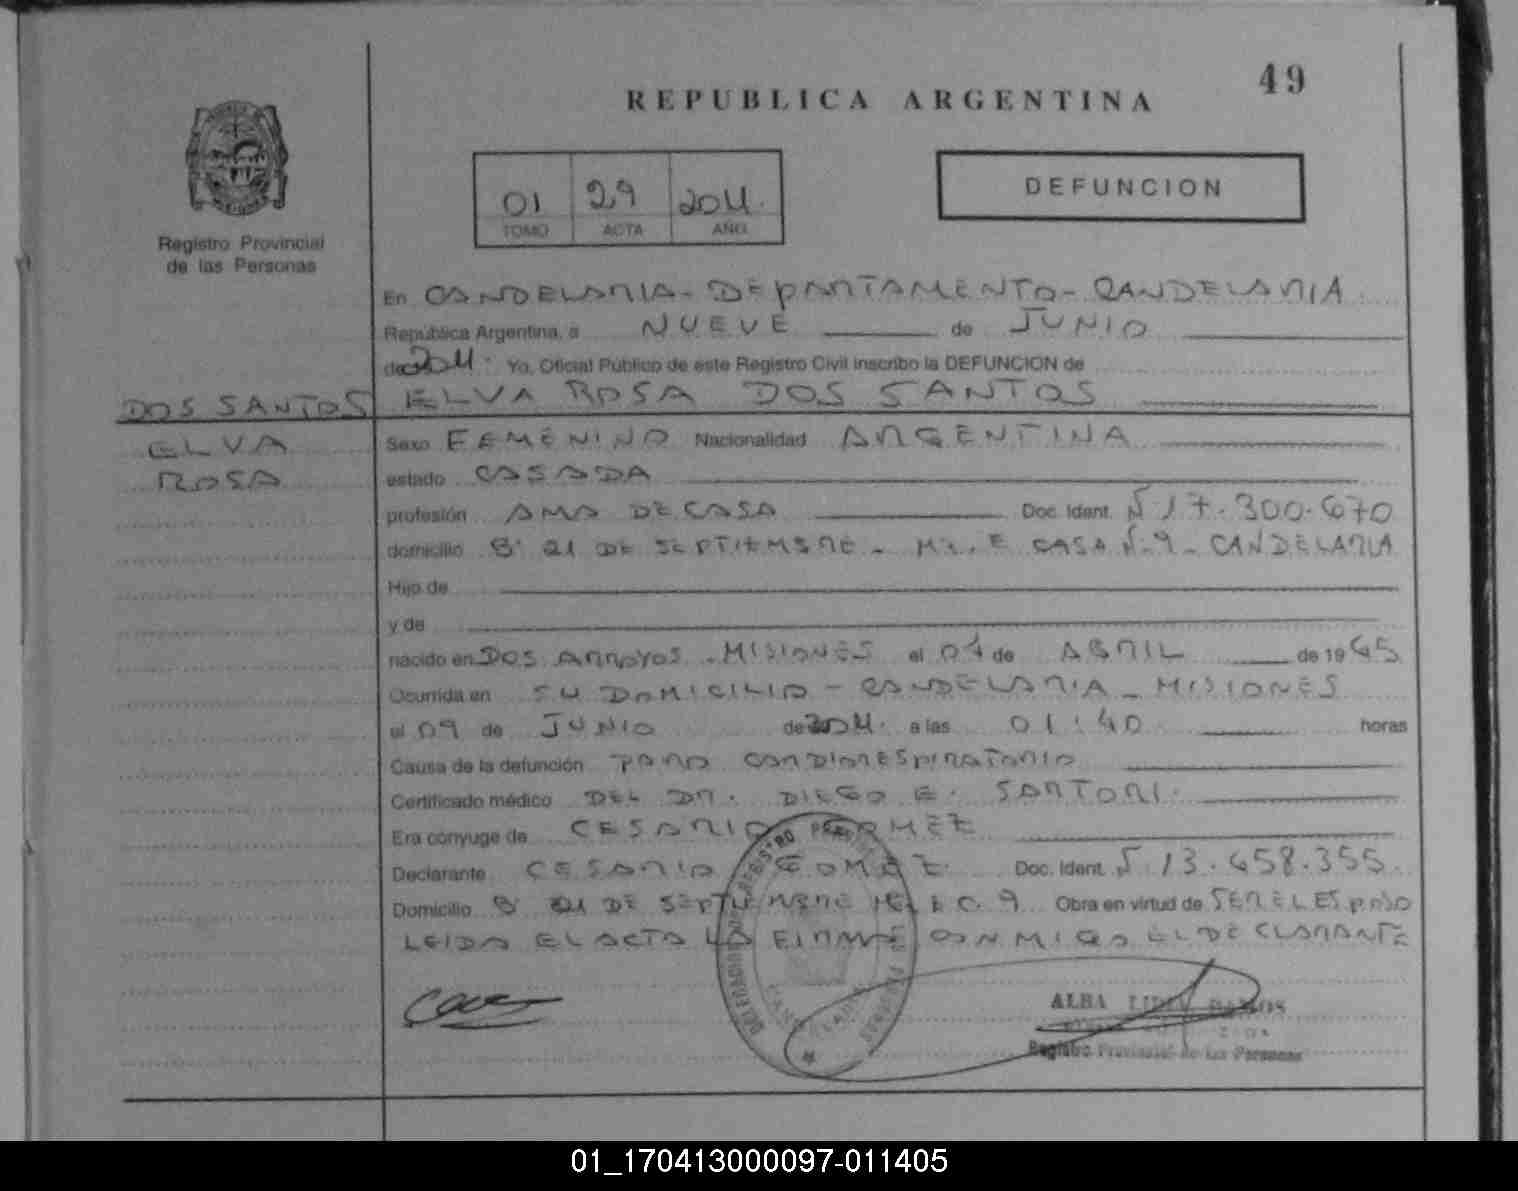 49
REPUBLICA ARGENTINA
01 29 2011.
TOMO ACTA AÑO
DEFUNCION
Registro Provincial
de las Personas
En CANDELARIA - DEPARTAMENTO - CANDELARIA
República Argentina, a NUEVE de JUNIO
de 2011. Yo, Oficial Público de este Registro Civil inscribo la DEFUNCION de
DOS SANTOS ELVA ROSA DOS SANTOS
ELVA Sexo FEMENINO Nacionalidad ARGENTINA
ROSA estado CASADA
profesión AMA DE CASA Doc. Ident. Nº 17.300.670
domicilio Bº 21 DE SEPTIEMBRE - Mz. E CASA Nº 9 - CANDELARIA
Hijo de
y de
nacido en DOS ARROYOS - MISIONES el de ABRIL de 1965
Ocurrida en SU DOMICILIO - CANDELARIA - MISIONES
el 09 de JUNIO de 2011. a las 01:40 horas
Causa de la defunción PARO CARDIORESPIRATORIO
Certificado médico DEL DR. DIEGO E. SARTORI.
Era cónyuge de CESARIO GOMEZ
Declarante CESARIO GOMEZ Doc. Ident. Nº 13.658.355.
Domicilio Bº 21 DE SEPTIEMBRE Mz. E C. 9 Obra en virtud de SER EL ESPOSO
LEIDA EL ACTA LA FIRMA CONMIGO EL DECLARANTE
ALBA LIDIA RAMOS
Registro Provincial de las Personas
01_170413000097-011405